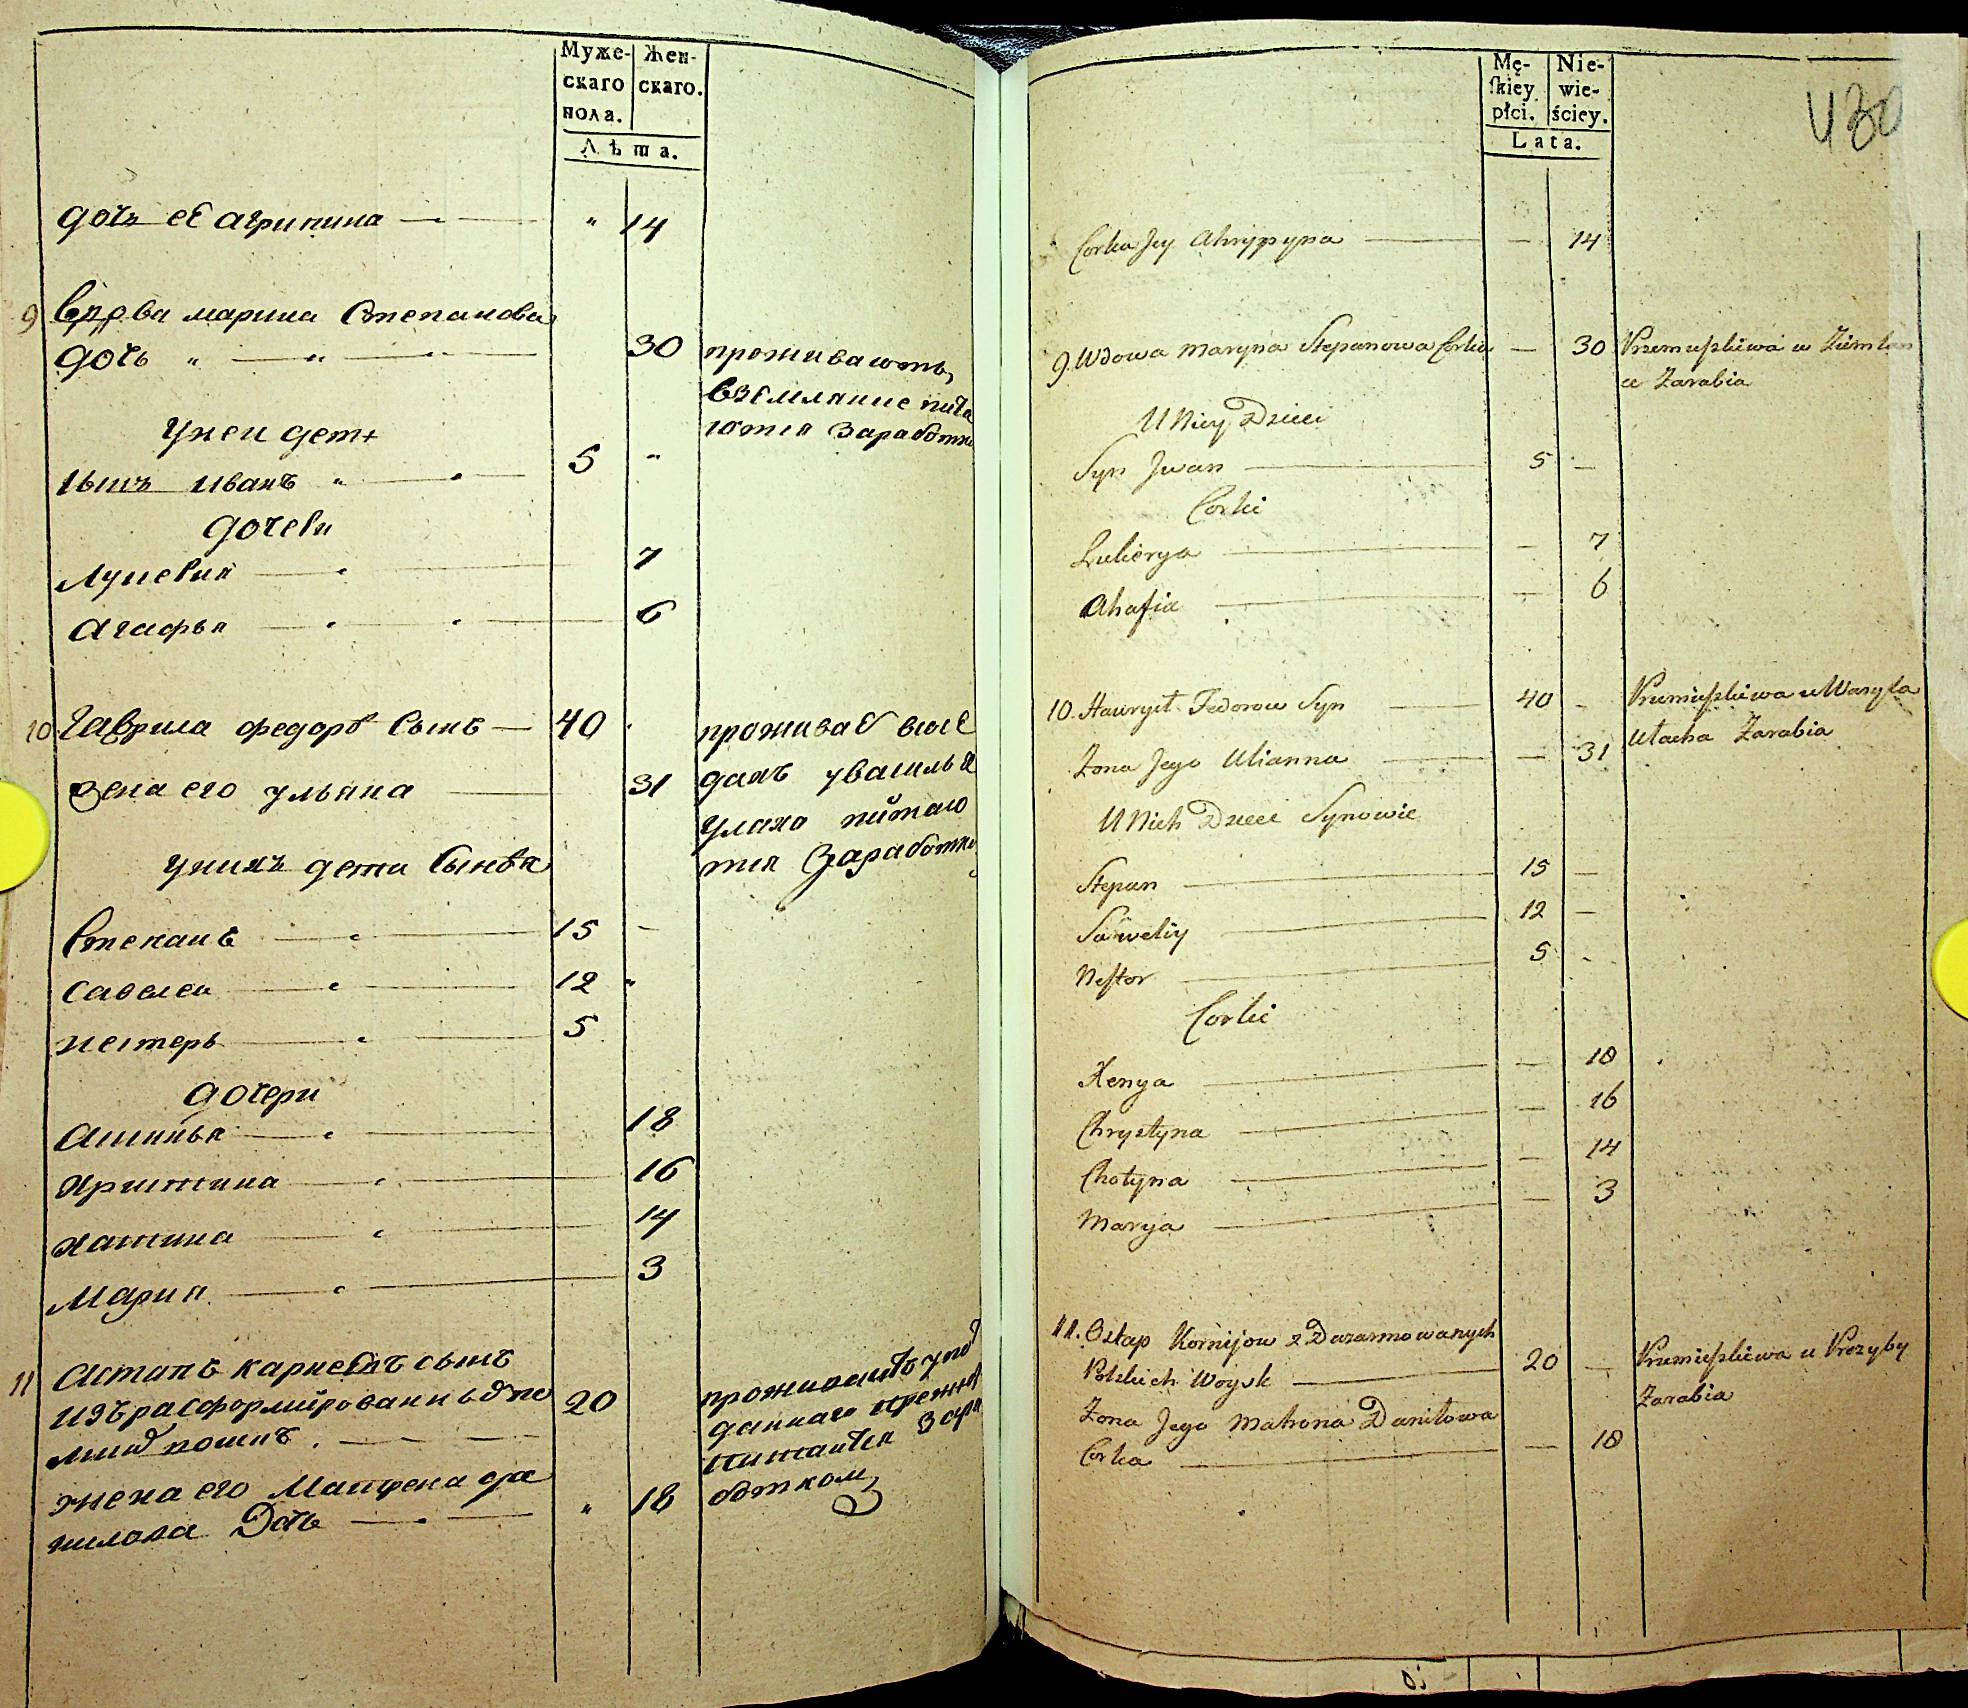 Муже- Жен-
скаго скаго.
пола.
Лѣта.
дочь еѣ агрипина — " 14
9 вдова марина Степанова
дочь " — 30 проживаютъ
вземлание пита
ются заработко
унеи дети
сынъ иванъ " 5 "
дочери
Лукерия 7
Агафья 6
10 Гаврила федоръ сынъ — 40 проживае
жена его ульяна 31
улаха питаю
тся Заработко
унихъ дети сыновя
Степанъ 15 -
Савелеи 12 "
нестеръ 5
дочери
Аксинья 18
христина 16
хатина 14
Мария 3
11 Астапъ карнеевъ сынъ
изъ расформированныхъ по
20
даннаго
питается Зара
боткомъ
жена его Матрена да
нилова Дочь — " 18
Mę- Nie-
skiey wie-
płci. ściey.
Lata.
430
Corka Jey Ahrypyna — 14
9. Wdowa Maryna Stepanowa Corka — 30 Przemieszkiwa u Ziemlan
a Zarabia
U Niey Dzieci
Syn Jwan 5 —
Corki
Lukierya — 7
Ahafia — 6
10. Hawryił Fedorow Syn 40 — Przemieszkiwa u Wasyla
Ułacha Zarabia
Zona Jego Ulianna — 31
U Nich Dzieci Synowie
Stepan 15 —
Saweliy 12 —
Nestor 5 -
Corki
Xenya — 18
Chrystyna — 16
Chotyna — 14
Marya — 3
11. Ostap Kornijow z Dazarmowanych
Polskich Woysk 20 — Przemieszkiwa u Prezyby
Zarabia
Zona Jego Matrona Daniłowa
Corka — 18